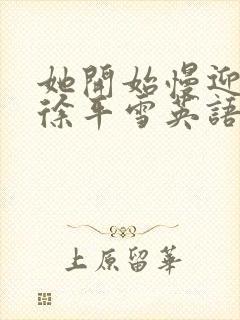 她開始慢迎
徐平雪英語
上原留華